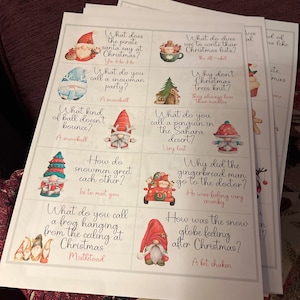 What does
the pirate
santa say at
Christmas?
Yo Ho Ho
What do
use to write their
Christmas
What do you
call a snowman
party?
A snowball
Why don't
Christmas
trees knit?
They always lose
their needles
What kind
of ball doesn't
bounce?
A snowball
What do you
call a penguin in
the Sahara
desert?
Very lost
How do
snowmen greet
each other?
Ice to meet you
Why did the
gingerbread man
go to the doctor?
He was feeling very
crumby
What do you call
a frog hanging
from the ceiling at
Christmas
Mistletoad
How was the snow
globe feeling
after Christmas?
A bit shaken